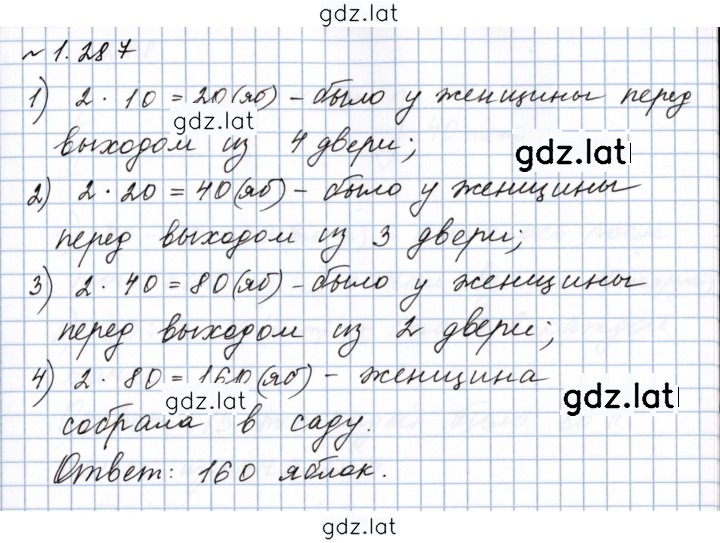 gdz.lat
№ 1.287
1) 2 · 10 = 20 (яб) - было у женщины перед
gdz.lat
выходом из 4 двери;
gdz.lat
2) 2 · 20 = 40 (яб) - было у женщины
перед выходом из 3 двери;
3) 2 · 40 = 80 (яб) - было у женщины
перед выходом из 2 двери;
4) 2 · 80 = 160 (яб) - женщина
gdz.lat
gdz.lat
собрала в саду.
Ответ: 160 яблок.
gdz.lat